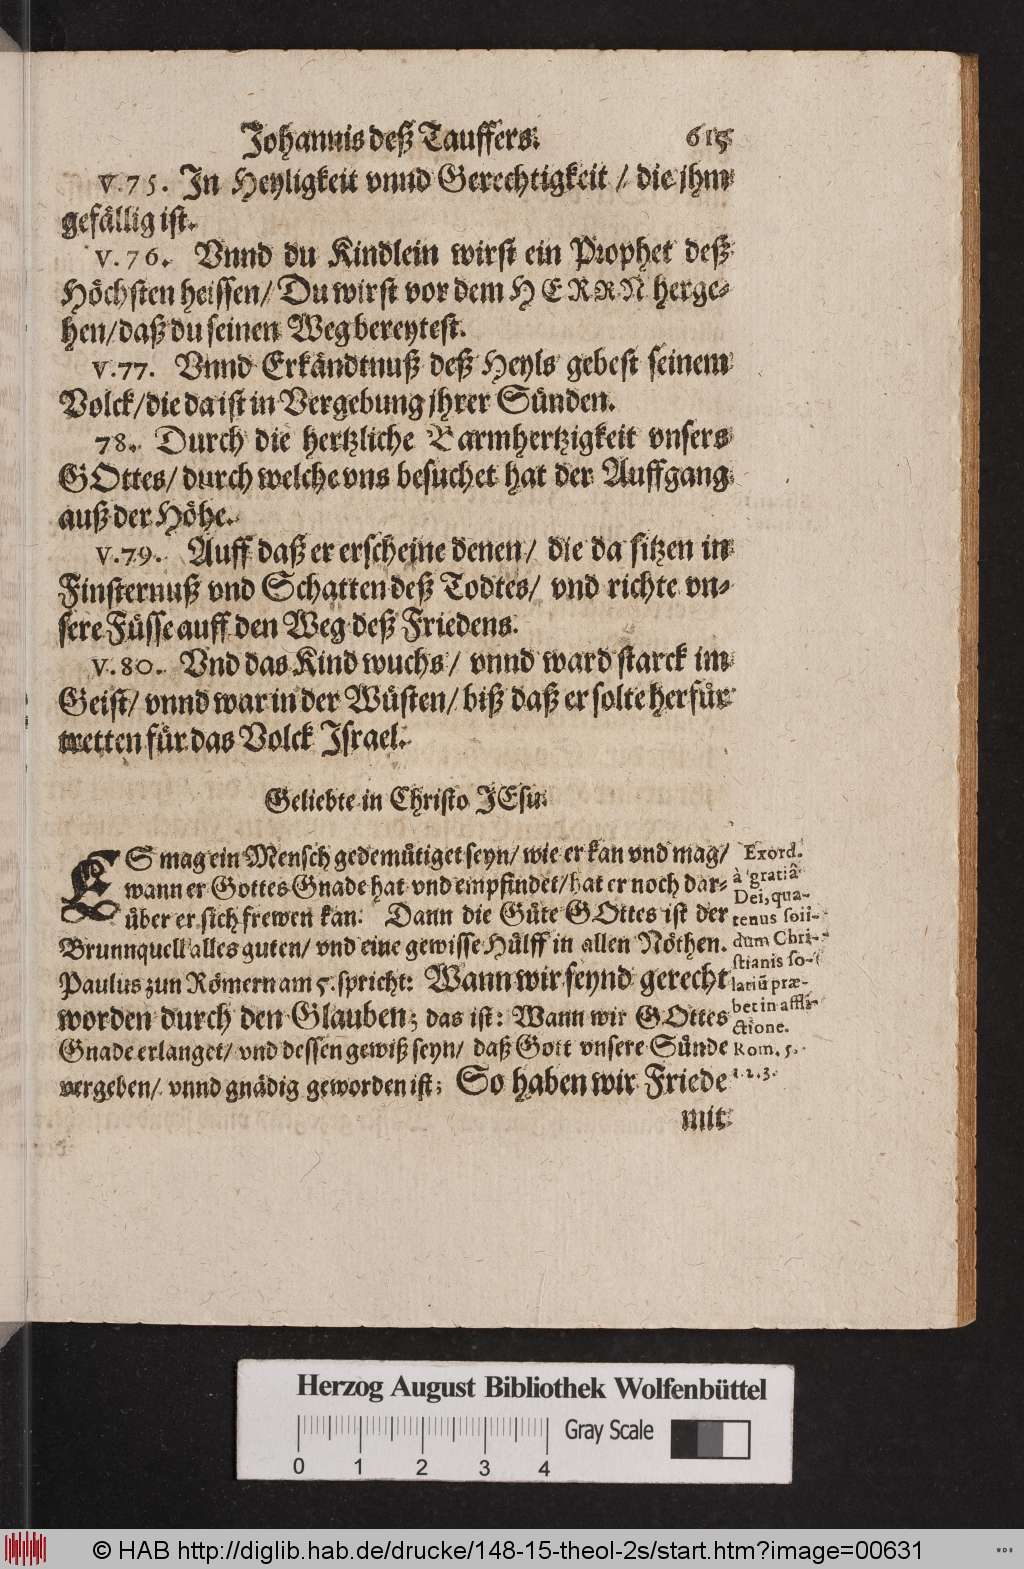 Johannis deß Tauffers. 615
V. 75. In Heyligkeit vnnd Gerechtigkeit / die jhm
gefällig ist.
V. 76. Vnnd du Kindlein wirst ein Prophet deß
Höchsten heissen / Du wirst vor dem HERRN herge-
hen / daß du seinen Weg bereytest.
V. 77. Vnnd Erkändtnuß deß Heyls gebest seinem
Volck / die da ist in Vergebung jhrer Sünden.
78. Durch die hertzliche Barmhertzigkeit vnsers
GOttes / durch welche vns besuchet hat der Auffgang
auß der Höhe.
V. 79. Auff daß er erscheine denen / die da sitzen in
Finsternuß vnd Schatten deß Todtes / vnd richte vn-
sere Füsse auff den Weg deß Friedens.
V. 80. Vnd das Kind wuchs / vnnd ward starck im
Geist / vnnd war in der Wüsten / biß daß er solte herfür
tretten für das Volck Israel.
Geliebte in Christo JEsu.
ES mag ein Mensch gedemütiget seyn / wie er kan vnd mag /
wann er Gottes Gnade hat vnd empfindet / hat er noch dar-
über er sich frewen kan. Dann die Güte GOttes ist der
Brunnquell alles guten / vnd eine gewisse Hülff in allen Nöthen.
Paulus zun Römern am 5. spricht: Wann wir seynd gerecht
worden durch den Glauben; das ist: Wann wir GOttes
Gnade erlanget / vnd dessen gewiß seyn / daß Gott vnsere Sünde
vergeben / vnnd gnädig geworden ist; So haben wir Friede
mit
Exord.
à gratiâ
Dei, qua-
tenus soli-
dum Chri-
stianis so-
latiũ præ-
bet in affli-
ctione.
Rom. 5.
1. 2. 3.
Herzog August Bibliothek Wolfenbüttel
Gray Scale
0 1 2 3 4
© HAB http://diglib.hab.de/drucke/148-15-theol-2s/start.htm?image=00631